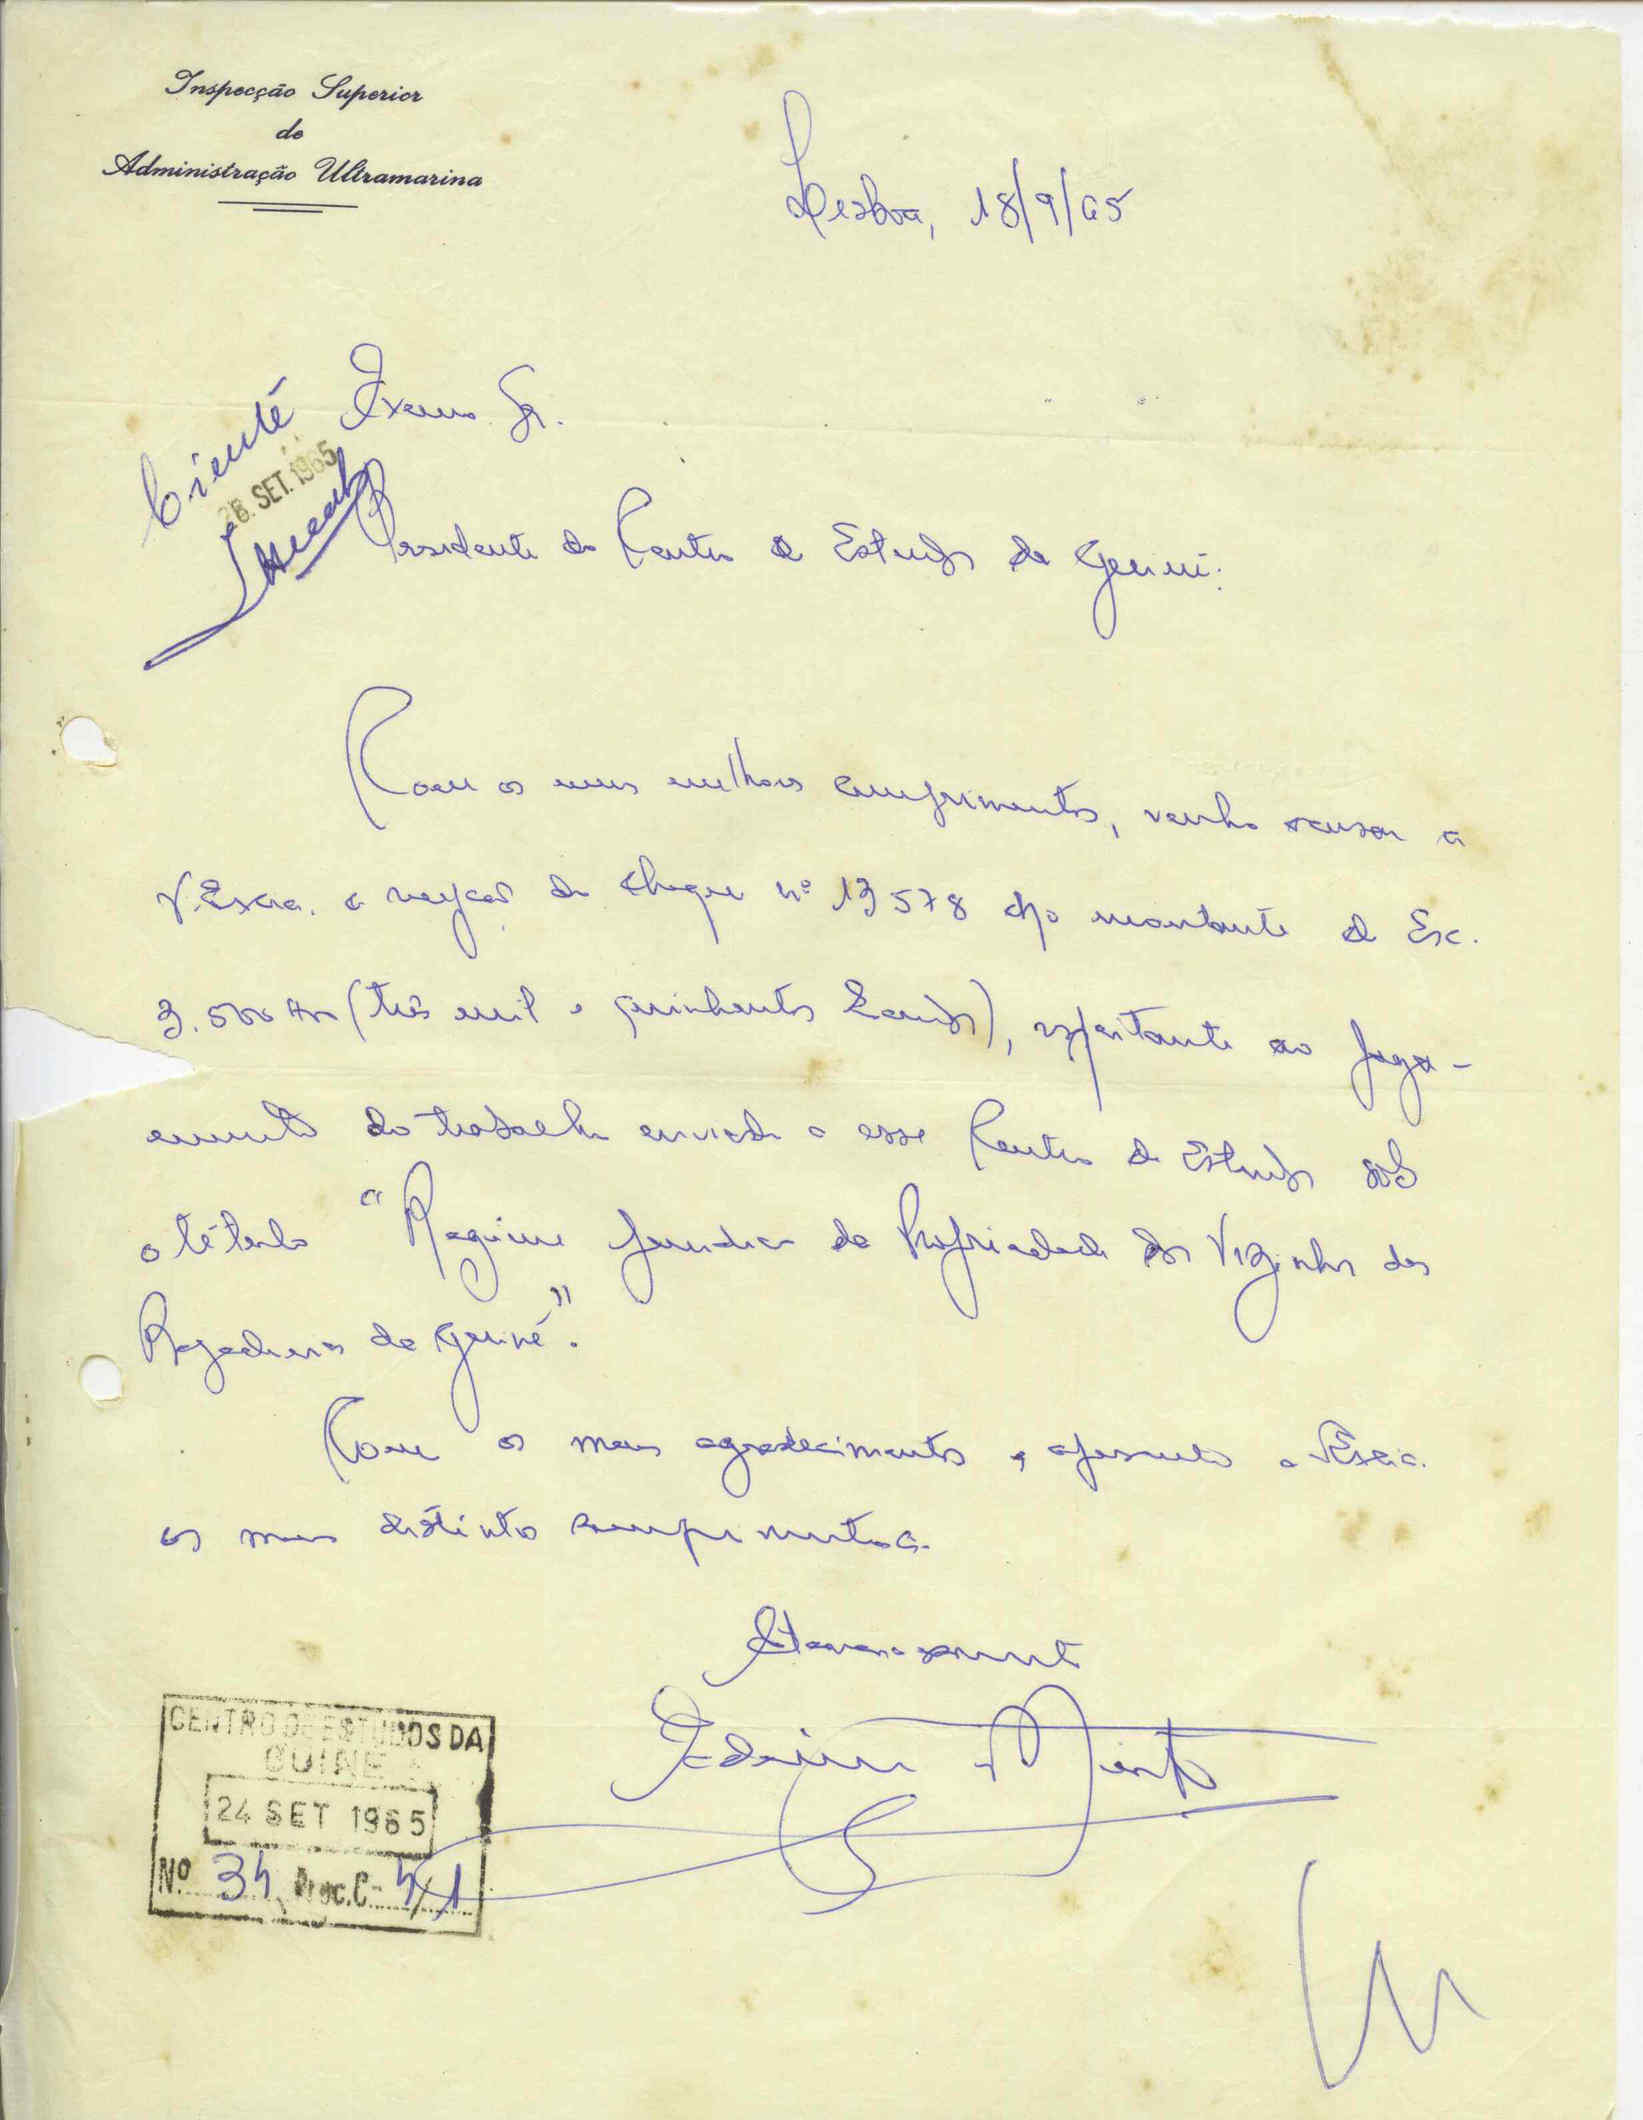 Inspecção Superior
de
Administração Ultramarina
Lisboa, 18/9/65
Ciente
28. SET. 1965
Exmo Sr.
Presidente do Centro de Estudos da Guiné:
Com os meus melhores cumprimentos, venho acusar a
V.Excia. a recepção do cheque nº 13578 do montante de Esc.
3.500$00 (três mil e quinhentos Escudos), respeitante ao paga-
mento do trabalho enviado a esse Centro de Estudos sob
o título "Regime Jurídico da Propriedade dos Vizinhos dos
Regedorias da Guiné".
Com os meus agradecimentos, apresento a V.Excia.
os meus distintos cumprimentos.
Atenciosamente
CENTRO DE ESTUDOS DA
GUINÉ
24 SET 1965
Nº 34 Proc. C- 4/1